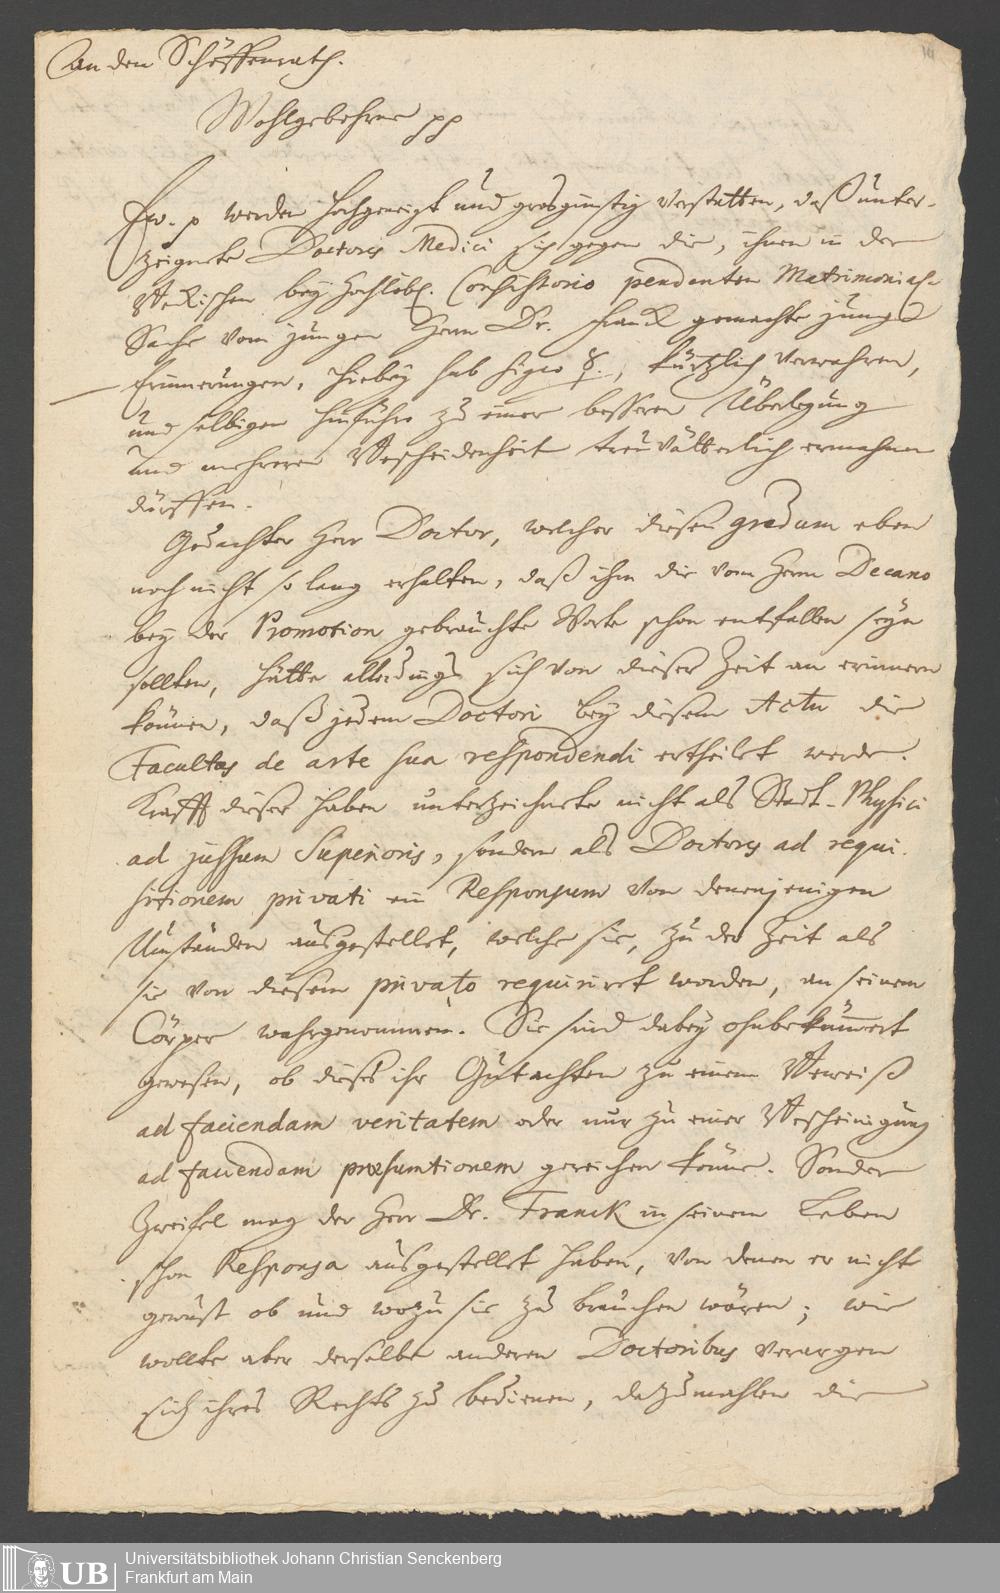 An den Schöffenrath.
Wohlgebohrne pp
Ew. p werden hochgeneigt und grosgünstig verstatten, daß unter-
zeignete Doctores Medici sich gegen die, ihnen in der
bey Hochlöbl. Consistorio pendenten Matrimonial-
Sache vom jungen Herrn Dr. Franck gemachte
Erinnerungen, hiebey sub signo , kürtzlich verwahren,
und selbigen hinführo zu einer besseren Überlegung
und mehreren Bescheidenheit treuvätterlich ermahnen
dürffen.
Gedachter Herr Doctor, welcher diesen gradum eben
noch nicht so lang erhalten, daß ihm die vom Herrn Decano
bey der Promotion gebrauchte Worte schon entfallen seyn
sollten, hätte allerdings sich von dieser Zeit an erinnern
können, daß jedem Doctori bey diesem Actu die
Facultas de arte sua respondendi ertheilet werde.
Krafft dieser haben unterzeichnete nicht als Stadt-Physici
ad jussum Superioris, sondern als Doctores ad requi-
sitionem privati ein Responsum von denenjenigen
Umständen ausgestellet, welche sie, zu der Zeit als
sie von diesem privato requiriret worden, an seinem
Cörper wahrgenommen. Sie sind dabey ohnbekümmert
gewesen, ob dieses ihr Gutachten zu einem Beweiß
ad faciendam veritatem oder nur zu einer Bescheinigung
ad faciendam præsumtionem gereichen könne. Sonder
Zweifel mag der Herr Dr. Franck in seinem Leben
schon Responsa ausgestellet haben, von denen er nicht
gewust ob und wozu sie zu brauchen wären; wie
wollte aber derselbe anderen Doctoribus verargen
sich ihres Rechts zu bedienen, dazumahlen die
UB
Universitätsbibliothek Johann Christian Senckenberg
Frankfurt am Main